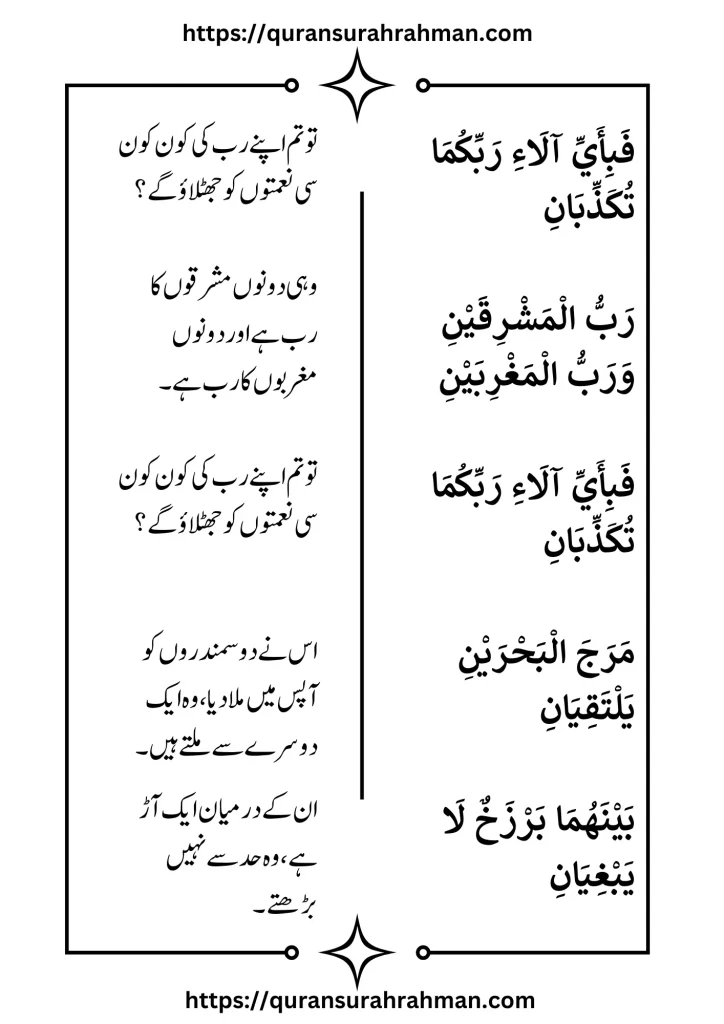 https://quransurahrahman.com
فَبِأَيِّ آلَاءِ رَبِّكُمَا
تُكَذِّبَانِ
تو تم اپنے رب کی کون کون
سی نعمتوں کو جھٹلاؤ گے؟
رَبُّ الْمَشْرِقَيْنِ
وَرَبُّ الْمَغْرِبَيْنِ
وہی دونوں مشرقوں کا
رب ہے اور دونوں
مغربوں کا رب ہے۔
فَبِأَيِّ آلَاءِ رَبِّكُمَا
تُكَذِّبَانِ
تو تم اپنے رب کی کون کون
سی نعمتوں کو جھٹلاؤ گے؟
مَرَجَ الْبَحْرَيْنِ
يَلْتَقِيَانِ
اس نے دو سمندروں کو
آپس میں ملا دیا، وہ ایک
دوسرے سے ملتے ہیں۔
بَيْنَهُمَا بَرْزَخٌ لَا
يَبْغِيَانِ
ان کے درمیان ایک آڑ
ہے، وہ حد سے نہیں
بڑھتے۔
https://quransurahrahman.com